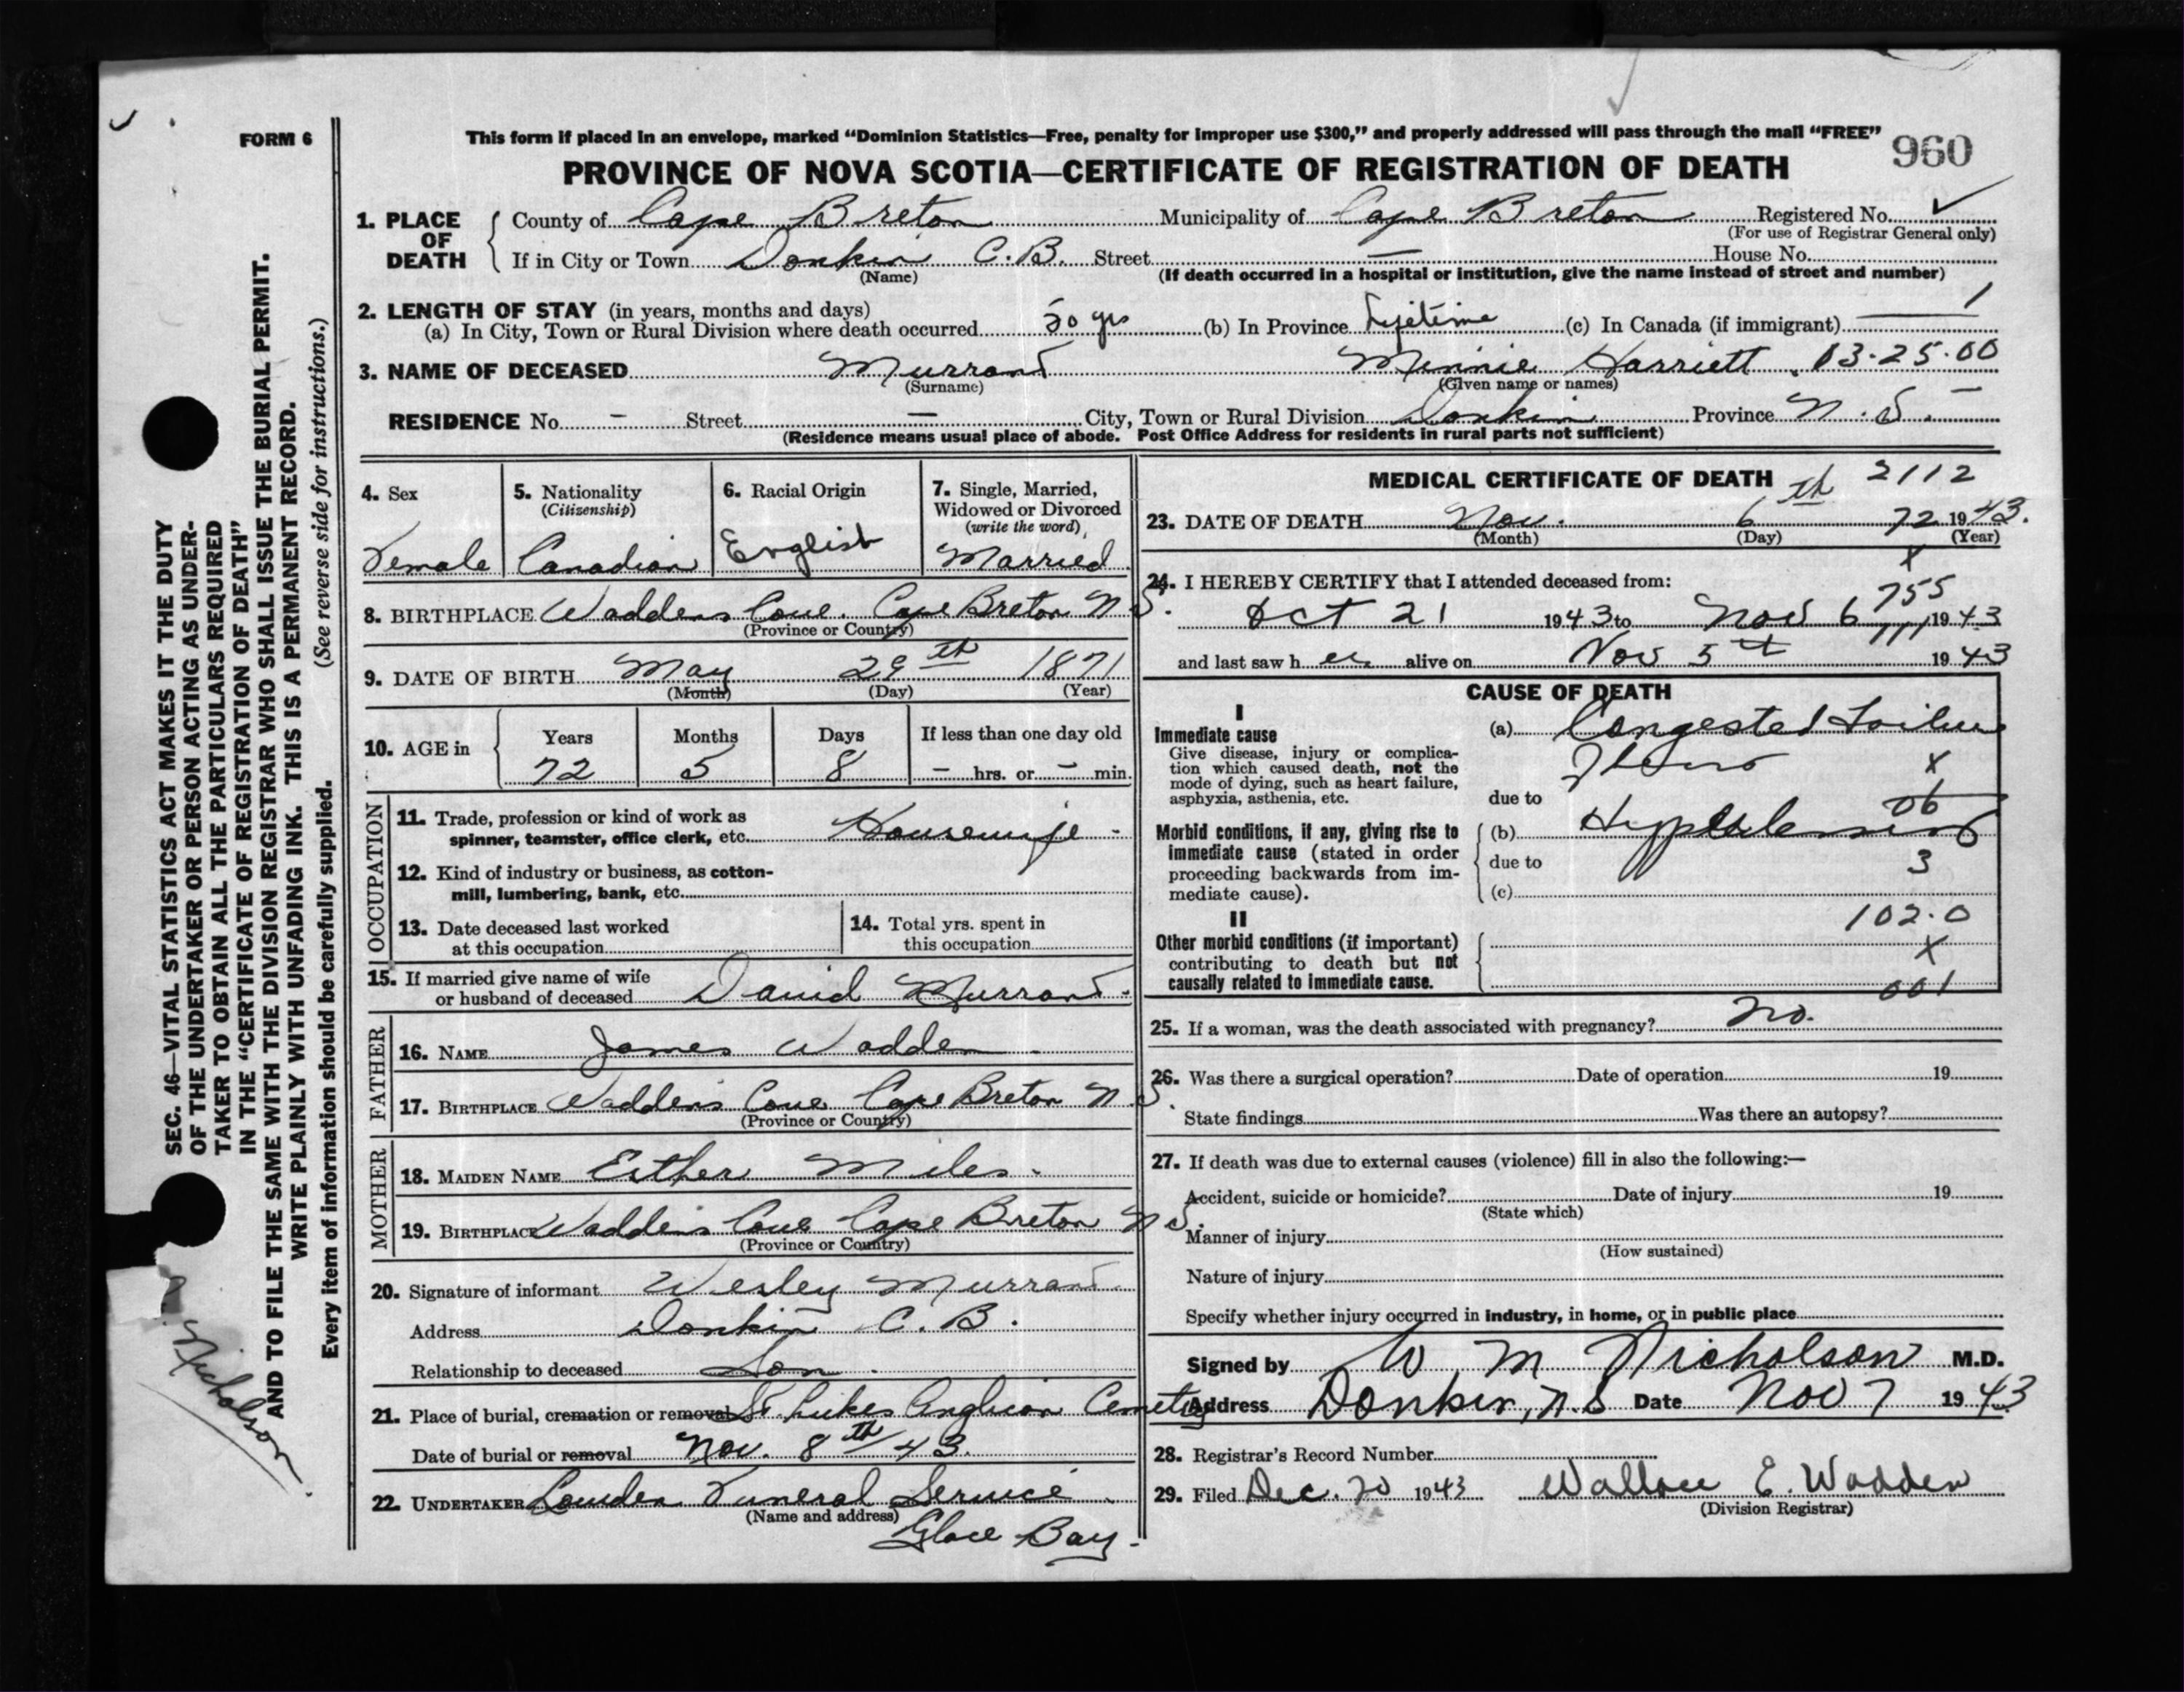 FORM 6
This form if placed in an envelope, marked “Dominion Statistics—Free, penalty for improper use $300,” and properly addressed will pass through the mail “FREE”
960
PROVINCE OF NOVA SCOTIA—CERTIFICATE OF REGISTRATION OF DEATH
1. PLACE OF DEATH
County of Cape Breton Municipality of Cape Breton Registered No. ✓
(For use of Registrar General only)
If in City or Town Donkin C.B. Street — House No.
(Name) (If death occurred in a hospital or institution, give the name instead of street and number)
2. LENGTH OF STAY (in years, months and days) 1
(a) In City, Town or Rural Division where death occurred 50 yrs (b) In Province Lifetime (c) In Canada (if immigrant) —
3. NAME OF DECEASED Murrant Minnie Harriett 03-25-00
(Surname) (Given name or names)
RESIDENCE No. — Street — City, Town or Rural Division Donkin Province N.S. —
(Residence means usual place of abode. Post Office Address for residents in rural parts not sufficient)
4. Sex
Female
5. Nationality
(Citizenship)
Canadian
6. Racial Origin
English
7. Single, Married,
Widowed or Divorced
(write the word)
Married
8. BIRTHPLACE Waddens Cove. Cape Breton N.S.
(Province or Country)
9. DATE OF BIRTH May 29th 1871
(Month) (Day) (Year)
10. AGE in
Years Months Days If less than one day old
72 5 8 — hrs. or — min.
OCCUPATION
11. Trade, profession or kind of work as
spinner, teamster, office clerk, etc. Housewife -
12. Kind of industry or business, as cotton-
mill, lumbering, bank, etc.
13. Date deceased last worked
at this occupation
14. Total yrs. spent in
this occupation
15. If married give name of wife
or husband of deceased David Murrant.
FATHER
16. NAME James Wadden
17. BIRTHPLACE Waddens Cove Cape Breton N.S.
(Province or Country)
MOTHER
18. MAIDEN NAME Esther Miles.
19. BIRTHPLACE Waddens Cove Cape Breton N.S.
(Province or Country)
20. Signature of informant Wesley Murrant
Address Donkin C.B.
Relationship to deceased Son
21. Place of burial, cremation or removal St. Lukes Anglican Cemetery
Date of burial or removal Nov. 8th 43.
22. UNDERTAKER Lowden Funeral Service
(Name and address)
Glace Bay.
MEDICAL CERTIFICATE OF DEATH 2112
23. DATE OF DEATH Nov. 6th 72 1943.
(Month) (Day) (Year)
x
24. I HEREBY CERTIFY that I attended deceased from:
755
Oct 21 1943 to Nov 6 1943
111
and last saw her alive on Nov 5th 1943
CAUSE OF DEATH
I
Immediate cause
Give disease, injury or complica-
tion which caused death, not the
mode of dying, such as heart failure,
asphyxia, asthenia, etc.
(a) Congested Failure
x
due to
06
Morbid conditions, if any, giving rise to
immediate cause (stated in order
proceeding backwards from im-
mediate cause).
(b) Hypertension
due to
3
(c)
102.0
II
Other morbid conditions (if important)
contributing to death but not
causally related to immediate cause.
x
001
25. If a woman, was the death associated with pregnancy? no.
26. Was there a surgical operation? Date of operation 19
State findings Was there an autopsy?
27. If death was due to external causes (violence) fill in also the following:—
Accident, suicide or homicide? Date of injury 19
(State which)
Manner of injury
(How sustained)
Nature of injury
Specify whether injury occurred in industry, in home, or in public place
Signed by W M Nicholson M.D.
Address Donkin, N.S Date Nov 7 1943
28. Registrar's Record Number
29. Filed Dec. 20 1943 Wallace E. Wadden
(Division Registrar)
SEC. 46—VITAL STATISTICS ACT MAKES IT THE DUTY
OF THE UNDERTAKER OR PERSON ACTING AS UNDER-
TAKER TO OBTAIN ALL THE PARTICULARS REQUIRED
IN THE “CERTIFICATE OF REGISTRATION OF DEATH”
AND TO FILE THE SAME WITH THE DIVISION REGISTRAR WHO SHALL ISSUE THE BURIAL PERMIT.
WRITE PLAINLY WITH UNFADING INK. THIS IS A PERMANENT RECORD.
(See reverse side for instructions.)
Every item of information should be carefully supplied.
Nicholson